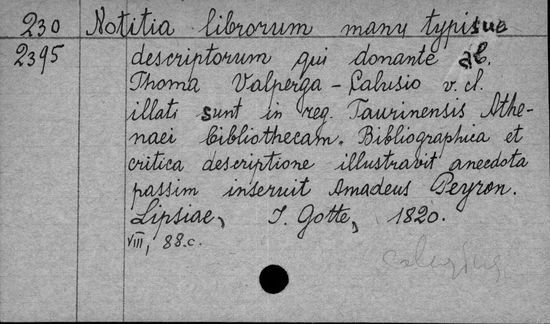 230 Notitia librorum manu typisue
2395 descriptorum qui donante ab.
Thoma Valperga-Calusio v. cl.
illati sunt in reg. Taurinensis Athe-
naei bibliothecam. Bibliographica et
critica descriptione illustravit anecdota
passim inseruit Amadeus Peyron.
Lipsiae, I. Gotte, 1820.
VIII, 88.c.